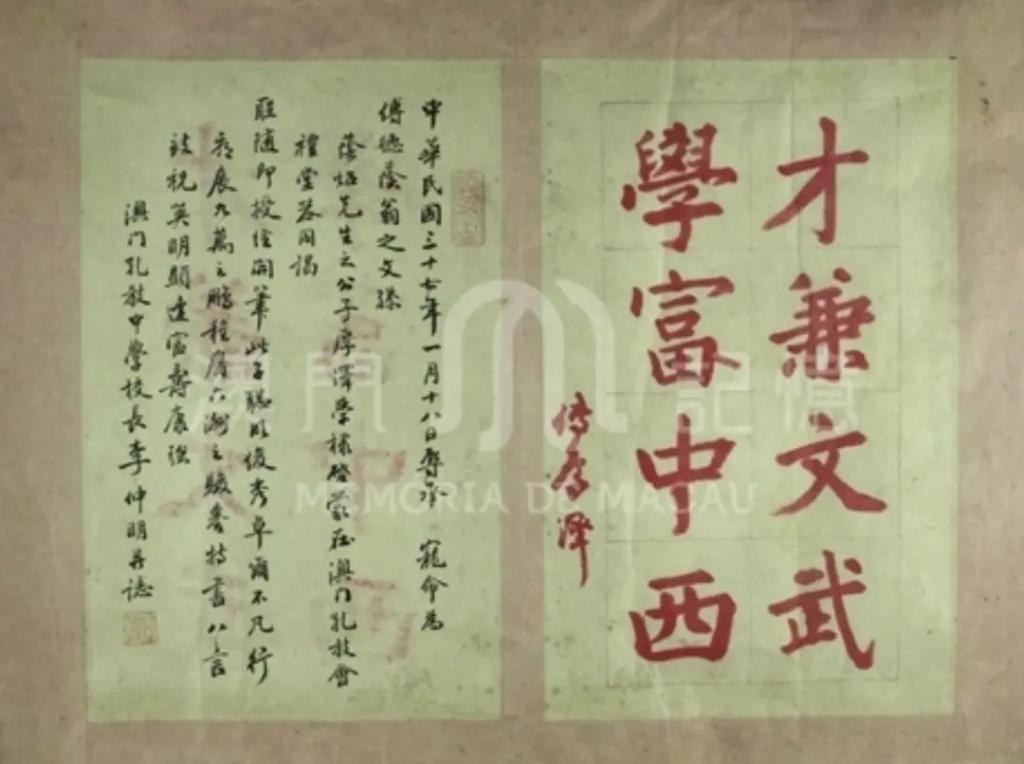 才兼文武
學富中西
傅厚澤
中華民國三十七年一月十八日辱承 寵命為
傅德蔭翁之文孫
蔭炤先生之公子厚澤學棣啓蒙在澳門孔教會
禮堂恭同謁
聖隨即授經開筆此子聰明俊秀卓爾不凡行
看展九萬之鵬程膺六洲之駿譽特書八言
敬祝英明顯達富壽康強
澳門孔教中學校長李仲明并誌
澳門記憶
MEMÓRIA DE MACAU